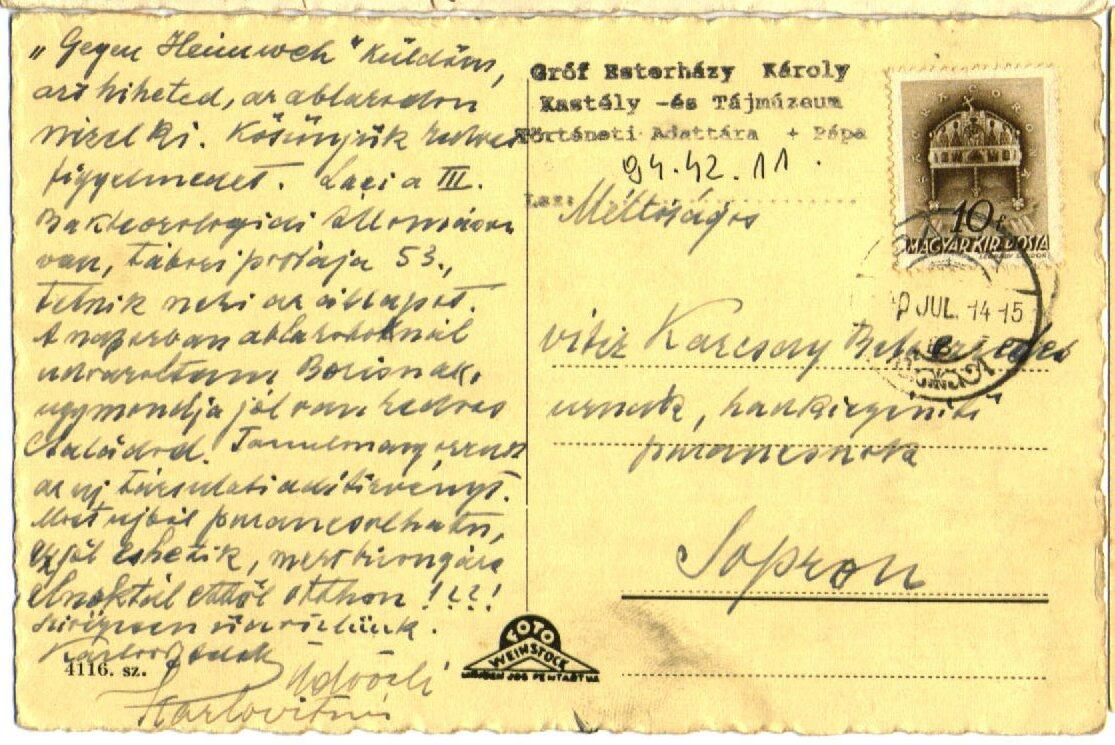 „Gegen Heimweh" küldöm,
azt hiheted, az ablakodon
nézel ki. Köszönjük kedves
figyelmedet. Laci a III.
Bakteorologiai Állomáson
van, tábori postája 53.,
tetszik neki az állapot.
A napokban ablakotoknál
udvaroltam Borisnak,
úgymondja jól van kedves
Családod. Tanulmányozzuk
az uj társulati adótörvényt.
Most ujból parancsolhatsz,
ez jól eshetik, mert
otthon !!?!
Szivesen üdvözlünk.
Üdvözli
4116. sz.
FOTO
WEINSTOCK
MINDEN JOG FENTARTVA
Gróf Esterházy Károly
Kastély -és Tájmúzeum
Történeti Adattára + Pápa
94.42.11.
Lsz:
Méltóságos
vitéz Karcsay
urnak, hadkiegészitő
parancsnok
Sopron
10 f
MAGYAR KIR. POSTA
JUL. 14 15